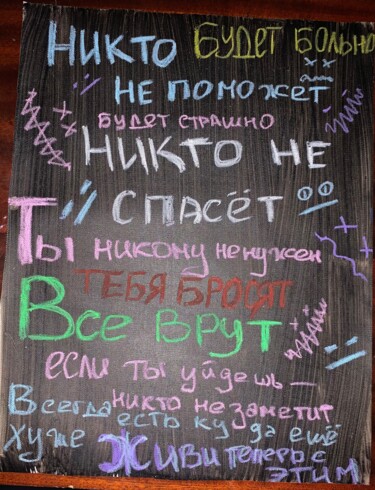 НИКТО БУДЕТ БОЛЬНО
НЕ ПОМОЖЕТ
БУДЕТ СТРАШНО
НИКТО НЕ
СПАСЁТ
Ты никому ненужен
ТЕБЯ БРОСЯТ
Все врут
если ты уйдешь —
никто не заметит
Всегда есть куда ещё
хуже Живи теперь с
этим